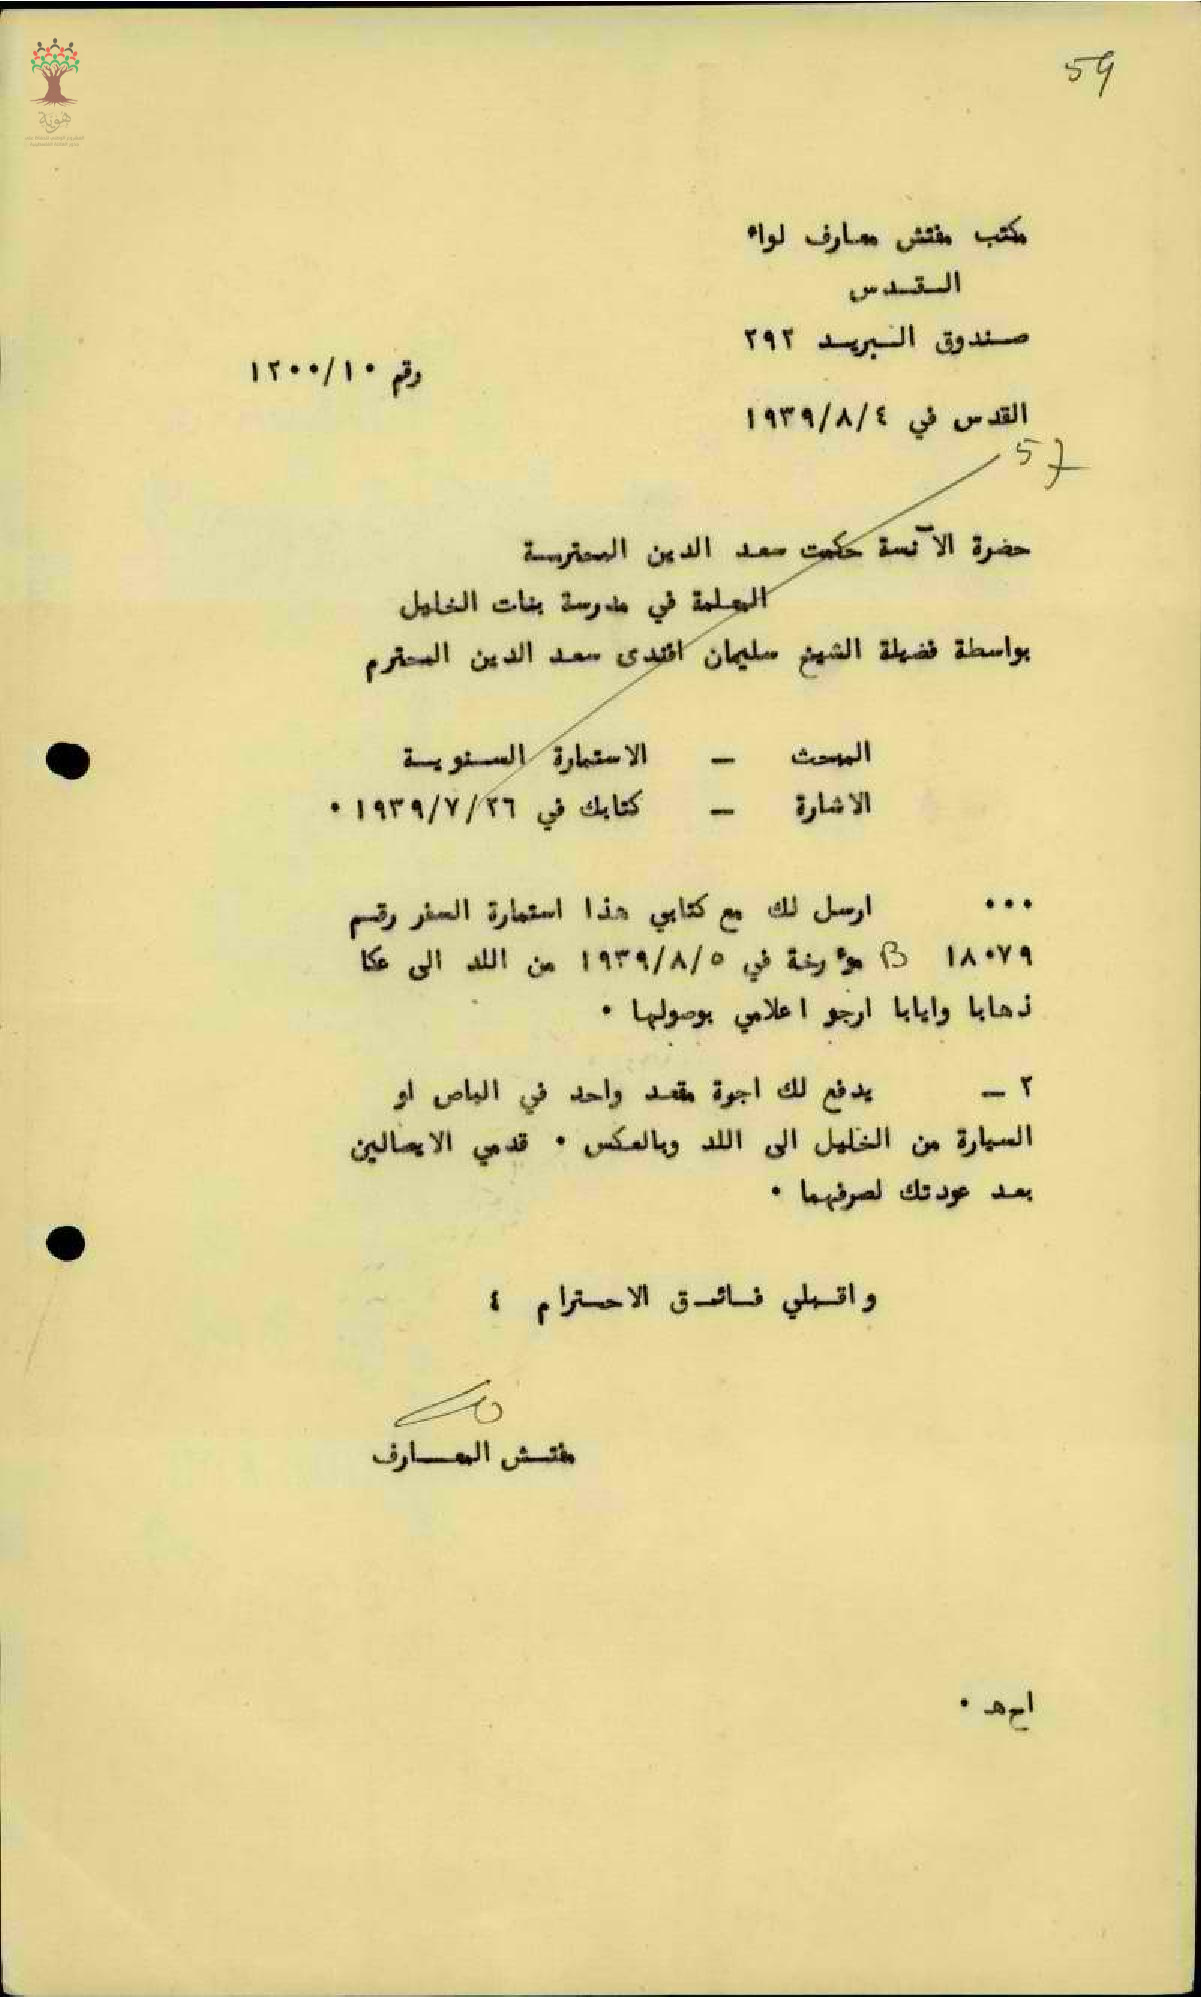 59
هوية
مكتب مفتش معارف لواء
القدس
صندوق البريد ٢٩٢
رقم ١٢٠٠/١٠
القدس في ١٩٣٩/٨/٤
57
حضرة الآنسة حكمت سعد الدين المحترمة
المعلمة في مدرسة بنات الخليل
بواسطة فضيلة الشيخ سليمان افندى سعد الدين المحترم
المبحث – الاستمارة السنوية
الاشارة – كتابك في ١٩٣٩/٧/٢٦ ٠
٠٠٠ ارسل لك مع كتابي هذا استمارة السفر رقم
١٨٠٧٩ B مؤرخة في ١٩٣٩/٨/٥ من اللد الى عكا
ذهابا وايابا ارجو اعلامي بوصولها ٠
٢ – يدفع لك اجوة مقعد واحد في الباص او
السيارة من الخليل الى اللد وبالعكس ٠ قدمي الايصالين
بعد عودتك لصرفهما ٠
واقبلي فائق الاحترام ٤
مفتش المعارف
اح هـ ٠